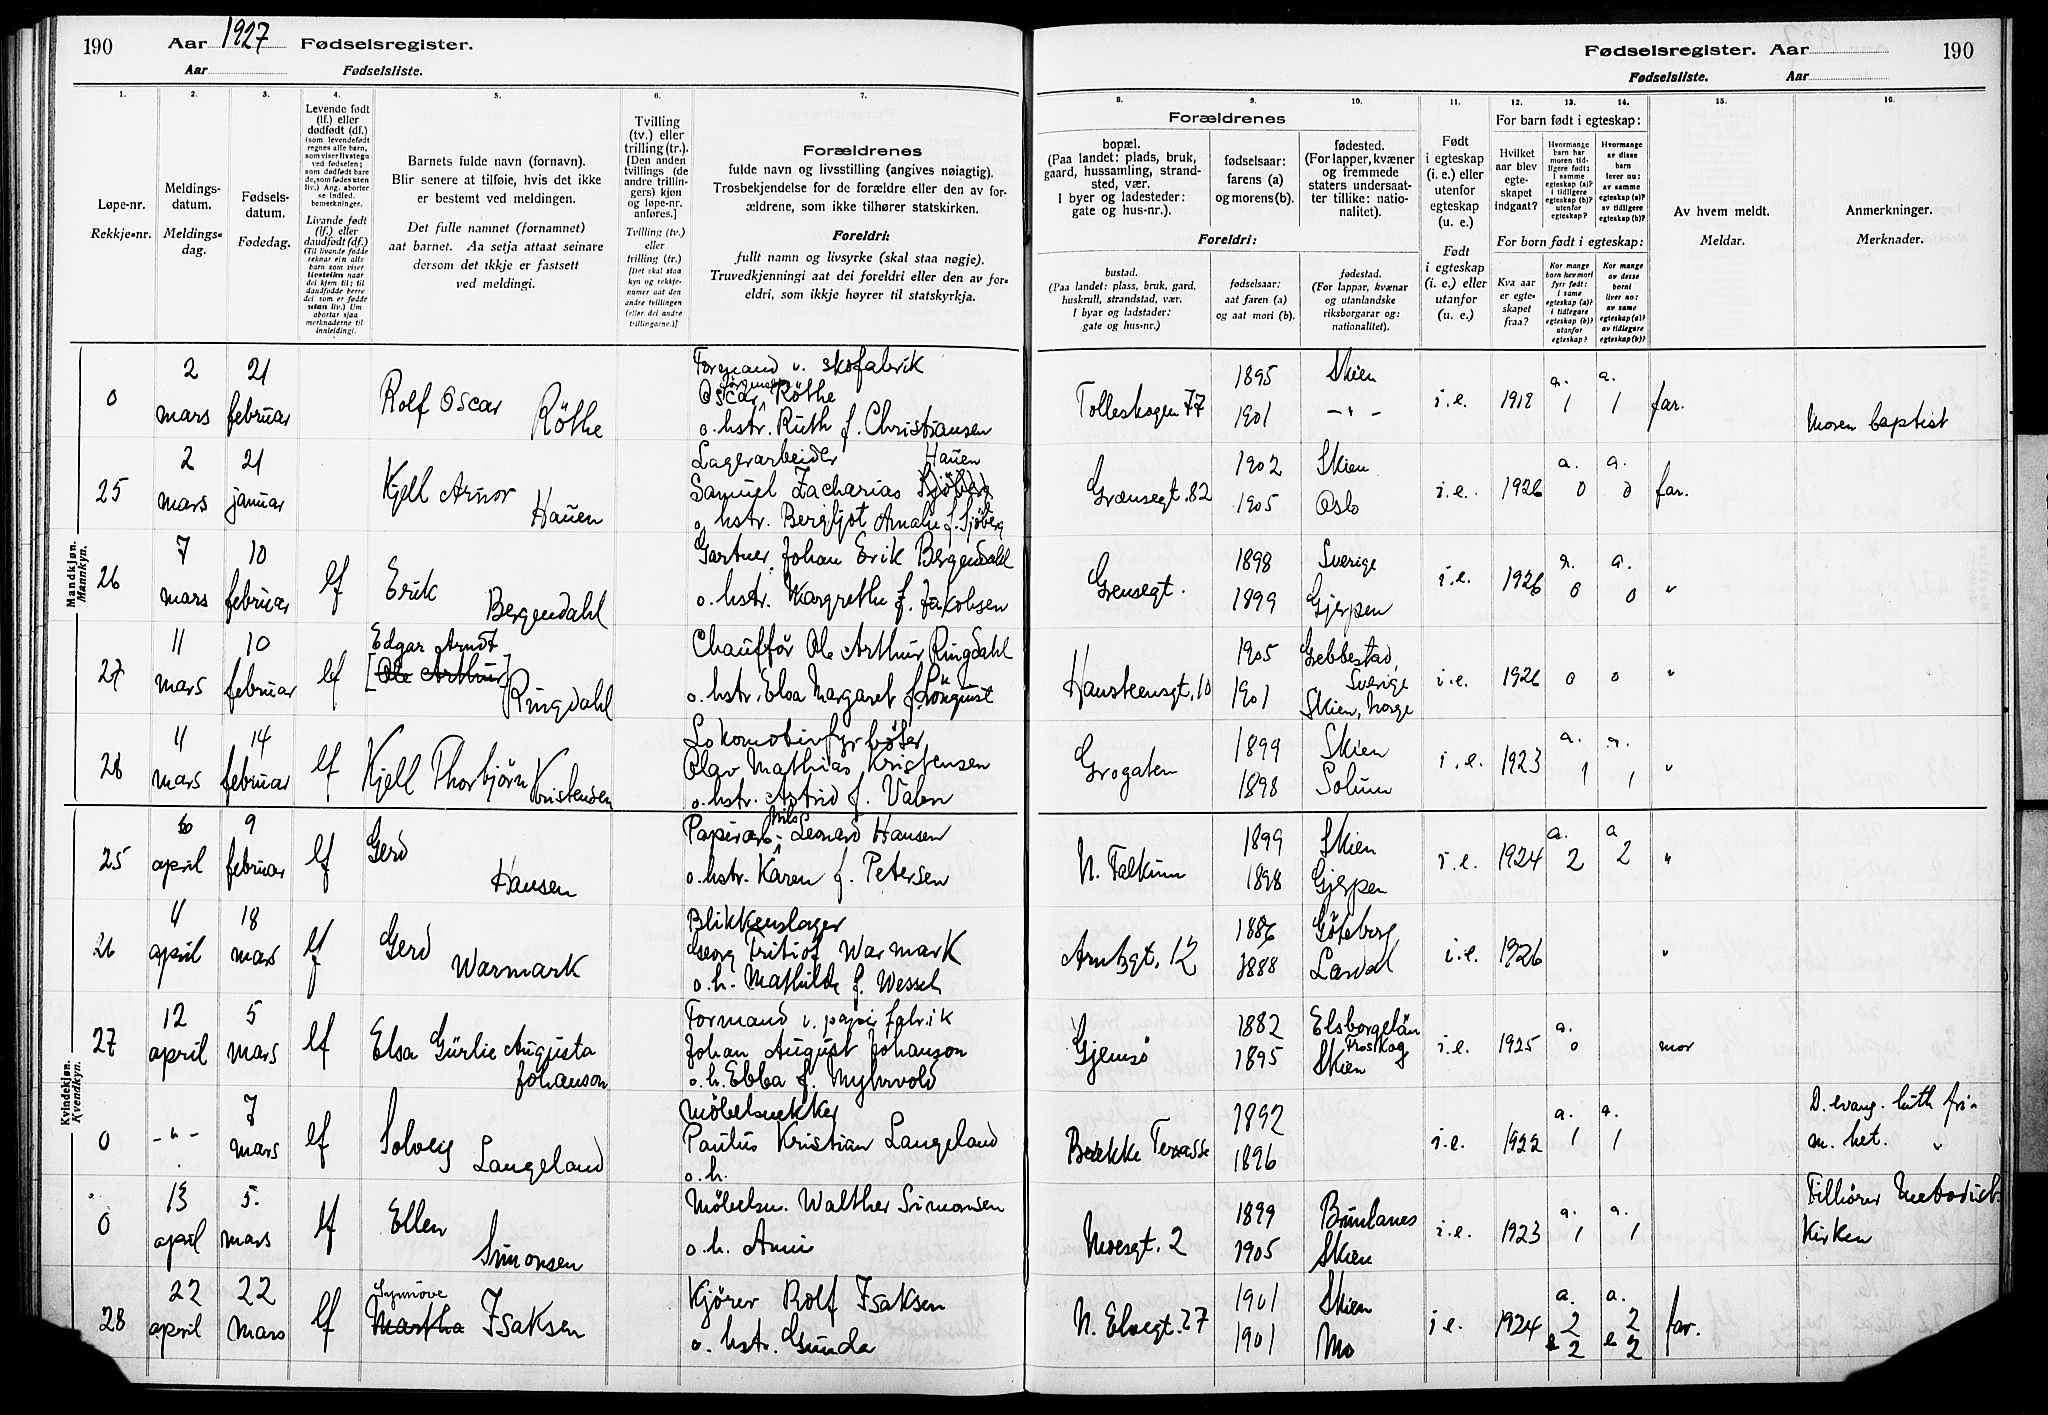 190 Aar 1927 Fødselsregister.
Aar Fødselsliste.
Fødselsregister. Aar 190
Fødselsliste. Aar
1. 2. 3. 4. 5. 6. 7.
8. 9. 10. 11. 12. 13. 14. 15. 16.
Løpe-nr.
Rekkje-nr.
Meldings-
datum.
Meldings-
dag.
Fødsels-
datum.
Fødedag.
Levende født
(lf.) eller
dødfødt (df.)
(som levendefødt
regnes alle barn,
som viser livstegn
ved fødselen;
som dødfødt bare
de, som fødes uten
liv.) Ang. aborter
se indled.
bemerkninger.
Livande født
(lf.) eller
daudfødt (df.)
(Til livande fødde
reknar ein alle
barn som viser
livsteikn naar
dei kjem til; til
daudfødde berre
dei som er fødde
utan liv.) Um
abortar sjaa
merknaderne til
innleidingi.
Barnets fulde navn (fornavn).
Blir senere at tilføie, hvis det ikke
er bestemt ved meldingen.
Det fulle namnet (fornamnet)
aat barnet. Aa setja attaat seinare
dersom det ikkje er fastsett
ved meldingi.
Tvilling
(tv.) eller
trilling (tr.).
[Den anden
tvillings (de
andre trillin-
gers) kjøn
og løpe-nr.
anføres.]
Tvilling (tv.)
eller
trilling (tr.)
[Det skal staa
kyn og rekkje-
numer aat den
andre tvillingen
(eller dei andre
trillingarne.)]
Forældrenes
fulde navn og livsstilling (angives nøiagtig).
Trosbekjendelse for de forældre eller den av for-
ældrene, som ikke tilhører statskirken.
Foreldri:
fullt namn og livsyrke (skal staa nøgje).
Truvedkjenningi aat dei foreldri eller den av for-
eldri, som ikkje høyrer til statskyrkja.
Forældrenes
bopæl.
(Paa landet: plads, bruk,
gaard, hussamling, strand-
sted, vær.
I byer og ladesteder:
gate og hus-nr.).
fødselsaar:
farens (a)
og morens (b).
fødested.
(For lapper, kvæner
og fremmede
staters undersaat-
ter tillike: natio-
nalitet).
Foreldri:
bustad.
(Paa landet: plass, bruk, gard,
huskrull, strandstad, vær.
I byar og ladstader:
gate og hus-nr.)
fødselsaar:
aat faren (a)
og aat mori (b).
fødestad.
(For lappar, kvænar
og utanlandske
riksborgarar og:
nationalitet).
Født
i egteskap
(i. e.) eller
utenfor
egteskap
(u. e.)
Født
i egteskap
(i. e.) eller
utanfor
(u. e.)
For barn født i egteskap:
Hvilket
aar blev
egte-
skapet
indgaat?
Hvormange
barn har
moren tid-
ligere født:
i samme
egteskap (a)?
i tidligere
egteskap (b)?
utenfor
egteskap?
Hvormange
av disse
barn
lever nu:
av samme
egteskap (a)?
av tidligere
egteskap (b)?
For born født i egteskap:
Kva aar
er egte-
skapet
fraa?
Kor mange
born hev mori
fyrr født:
i same
egteskap (a)?
i tidlegare
egteskap (b)?
utanfor
egteskap?
Kor mange
av desse
borni
liver no:
av same
egteskap (a)?
av tidlegare
egteskap (b)?
Av hvem meldt.
Meldar.
Anmerkninger.
Merknader.
Mandkjøn.
Mannkyn.
0 2 mars 21 februar Rolf Oscar Röthe
Formand v. skofabrik
Oscar Jørgensen Röthe
o. hstr. Ruth f. Christiansen
Tolleskogen 77 1895 Skien i.e. 1918 a. 1 a. 1 far.
1901 -"- Moren baptist
25 2 mars 21 januar Kjell Arnor Hauen
Lagerarbeider Hauen
Samuel Zacharias Sjöberg
o. hstr. Bergljot Amalie f. Sjöberg
Grænsegt. 82 1902 Skien i.e. 1926 a. 0 a. 0 far.
1905 Oslo
26 7 mars 10 februar lf Erik Bergendahl
Gartner Johan Erik Bergendahl
o. hstr. Margrethe f. Jakobsen
Grensegt. 1898 Sverige i.e. 1926 a. 0 a. 0 "
1899 Gjerpen
27 11 mars 10 februar lf Edgar Arndt
[Ole Arthur] Ringdahl
Chauffør Ole Arthur Ringdahl
o. hstr. Elsa Margaret f. Lönquist
Hansteensgt. 10 1905 Grebbestad, Sverige i.e. 1926 0 0 "
1901 Skien, Norge
28 11 mars 14 februar lf Kjell Thorbjørn Kristensen
Lokomotivfyrbøter
Olav Mathias Kristensen
o. hstr. Astrid f. Valen
Grogaten 1899 Skien i.e. 1923 a. 1 a. 1 "
1898 Solum
Kvindekjøn.
Kvendkyn.
25 april 9 februar lf Gerd Hansen
Papirarb. Nils Leonard Hansen
o. hstr. Karen f. Petersen
N. Falkum 1899 Skien i.e. 1924 a. 2 a 2 "
1898 Gjerpen
26 4 april 18 mars lf Gerd Warmark
Blikkenslager
Georg Fritiof Warmark
o. h. Mathilde f. Wessel
Arntzgt. 12 1886 Göteborg i.e. 1926 "
1888 Lardal
27 12 april 5 mars lf Elsa Gürlie Augusta Johanson
Formand v. papirfabrik
Johan August Johanson
o. h. Ebba f. Myhrvold
Gjemsø 1882 Elsborgelän i.e. 1925 a. 0 mor
1895 Skien
0 -"- 7 mars lf Solveig Langeland
Møbelsnekker
Paulus Kristian Langeland
o. h.
Bække Terasse 1892 i.e. 1922 a. 1 a. 1 D. evang. luth fri-
1896 m. het. "
0 13 april 5. mars lf Ellen Simonsen
Møbelsn. Walther Simonsen
o. h. Anni
Moesgt. 2 1899 Brunlanes i.e. 1923 a. 1 a. 1 Tilhører Metodist-
1905 Skien Kirken
28 22 april 22 mars lf Synnøve
Martha Isaksen
Kjører Rolf Isaksen
o. hstr. Gunda
N. Elvegt. 27 1901 Skien i.e. 1924 a. 2 a. 2 far.
1901 Mo e 2 e 2